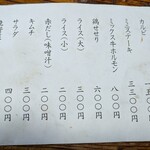 カルビー 一五〇〇円
ミニステーキ 三三〇〇円
ミックス牛ホルモン 八〇〇円
鶏せせり 六〇〇円
ライス(大) 三〇〇円
ライス(小) 二〇〇円
赤だし(味噌汁) 二〇〇円
キムチ 四〇〇円
サラダ 四〇〇円